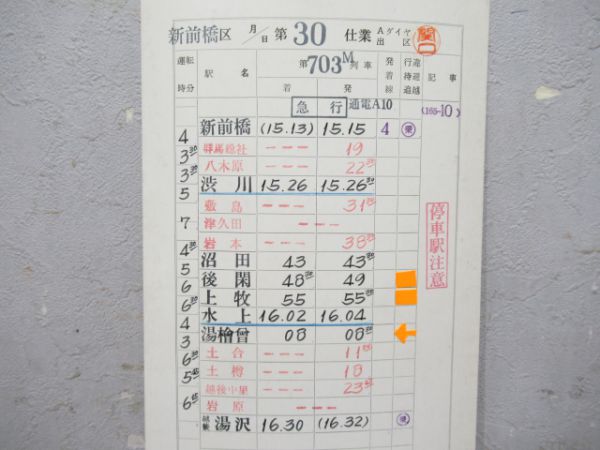 新前橋区 月/日 第 30 仕業 Aダイヤ 出区 関口
運転時分 駅名 第703M列車 着 発 発着線 行違 待避 追越 記事
急行 通電A10 (165-10)
新前橋 (15.13) 15.15 4
4
群馬総社 --- 19
3 30
八木原 --- 22 30
3 30
渋川 15.26 15.26 30
5
敷島 --- 31 30
津久田 ---
7
岩本 --- 38 30
4 30
沼田 43 43 30
5
後閑 48 30 49
6
上牧 55 55 30
6 30
水上 16.02 16.04
4
湯檜曽 08 08 30
3
土合 --- 11
6 30
土樽 --- 18
5 45
越後中里 --- 23
岩原 ---
6 45
越後湯沢 16.30 (16.32)
停車駅注意